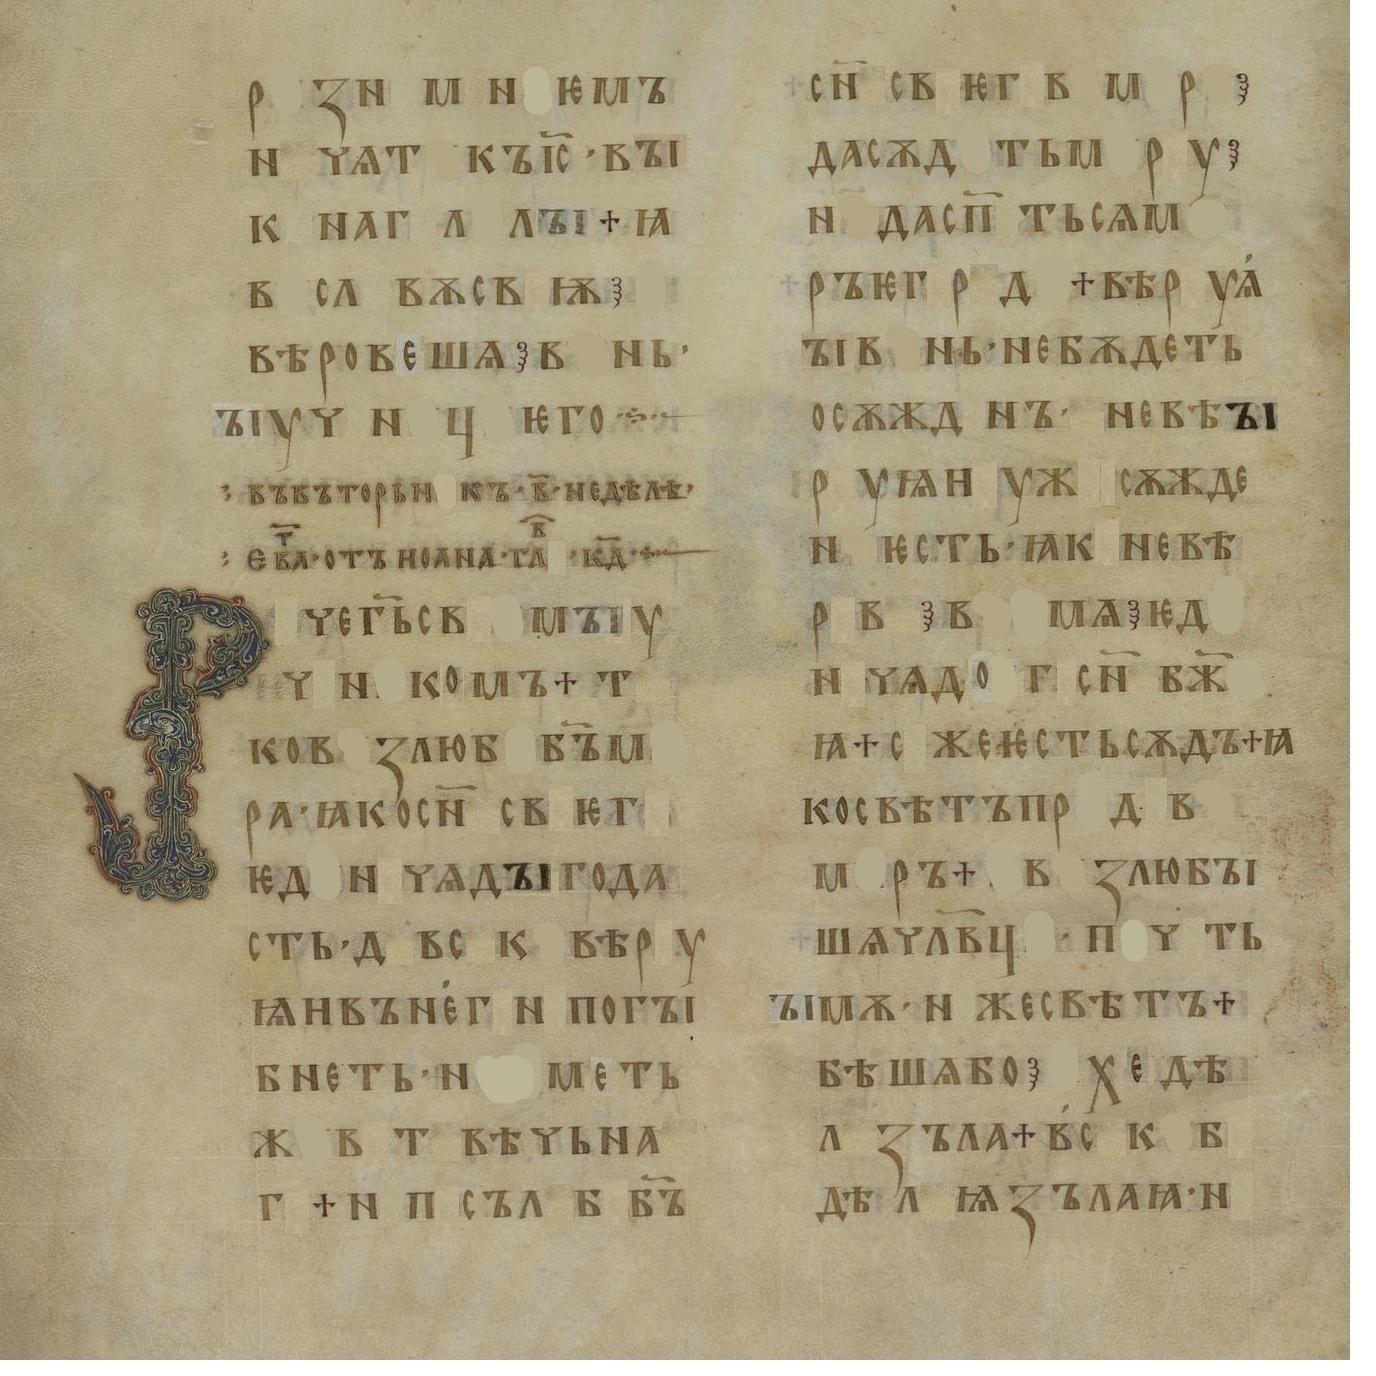 р зн м н ѥмъ
н чѧт къіс҃ ·въі
к наг л лъі+ꙗ
в сл вѫсв ѭѯ
вѣровешѧѯв нь·
ъіуч н ц ѥго
въвъторьн къ·в҃·недѣлѣ·
ев҃ⷮа·отъ иоана·гл҃ⷡа ·кд҃·
Р чег҃ьсв мъіу
ч н комъ+ т
ков злюб б҃ъм
ра·ꙗкосн҃ св ѥг
ѥд н чѧдъігода
сть·д вс к вѣр у
ѩнвънег н погъі
бнеть·н меть
ж в т вѣчьна
г +н п съл б б҃ъ
сн҃ св ѥг в м р ѯ
дасѫд тьм р уѯ
н дасп҃ тьсѧм
ръѥг р д +вѣр уѧ
ъів нь·небѫдеть
осѫжд нъ· невѣъі
р уѩн уж сѫжде
н ѥсть·ꙗк невѣ
р в ѯв мѧѯѥд
н чѧдо г сн҃ бж҃
ꙗ+с жеѥстьсѫдъ+ꙗ
косвѣтъпр д в
м ръ+ в злюбъі
шѧчлв҃ц ·п ч ть
ъімѫ·н жесвѣтъ+
бѣшѧбоѯ хе дѣ
л зъла+вс к б
дѣ л ѩзълаꙗ·н